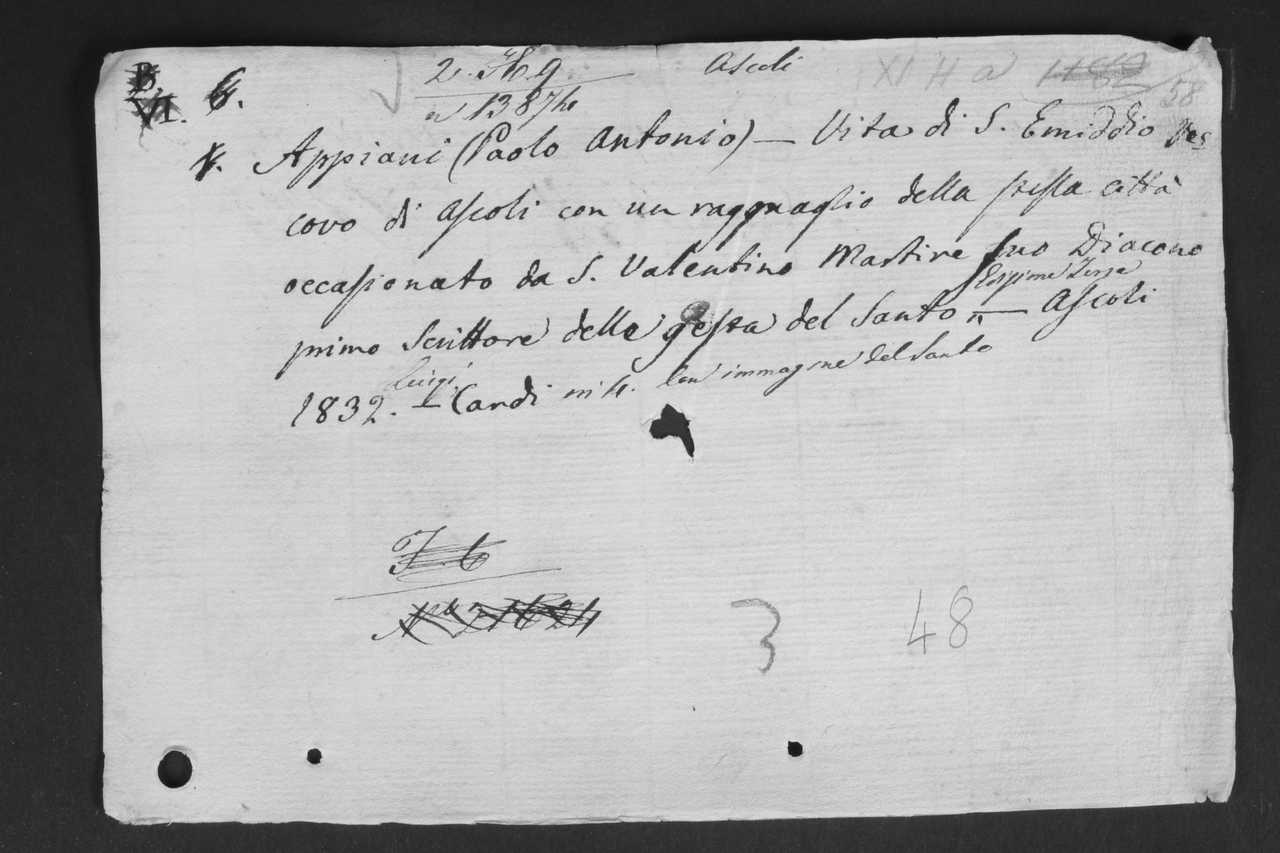 B.
VI. 6.
2. H. 9 Ascoli XI H a 58
a 1387he
Appiani (Paolo Antonio) — Vita di S. Emiddio Ves
covo di Ascoli con un ragguaglio della stessa città
occasionato da S. Valentino Martire suo Diacono
primo Scrittore delle gesta del Santo — Ascoli
Edizione Terza
1832. — Luigi Cardi in 4. Con immagine del Santo
3 48